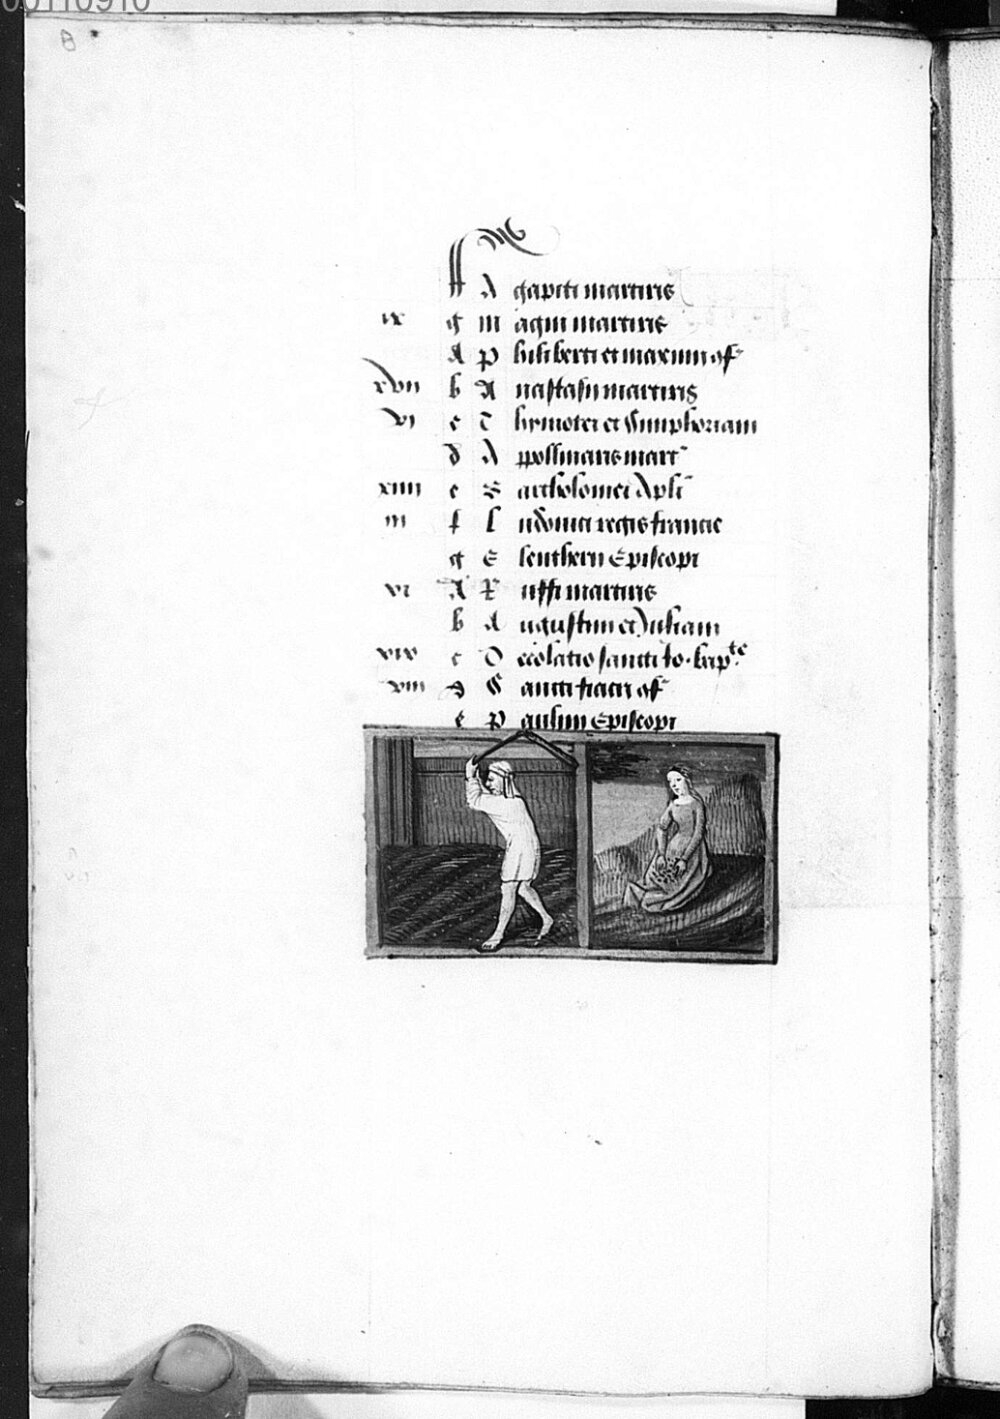 00110910
8
f A gapiti martiris
ix g M agni martiris
A P hiliberti et maximi of
xvii b A nastasii martiris
vi c T hymotei et Simphoriani
d A ppollinaris mart
xiiii e B artholomei Apli
iii f L udovici regis francie
g E leutherii Episcopi
xi A R uffi martiris
b A ugustini et Juliani
xix c D ecolatio sancti Io. bapte
viii d S ancti fiacri of
e P aulini Episcopi